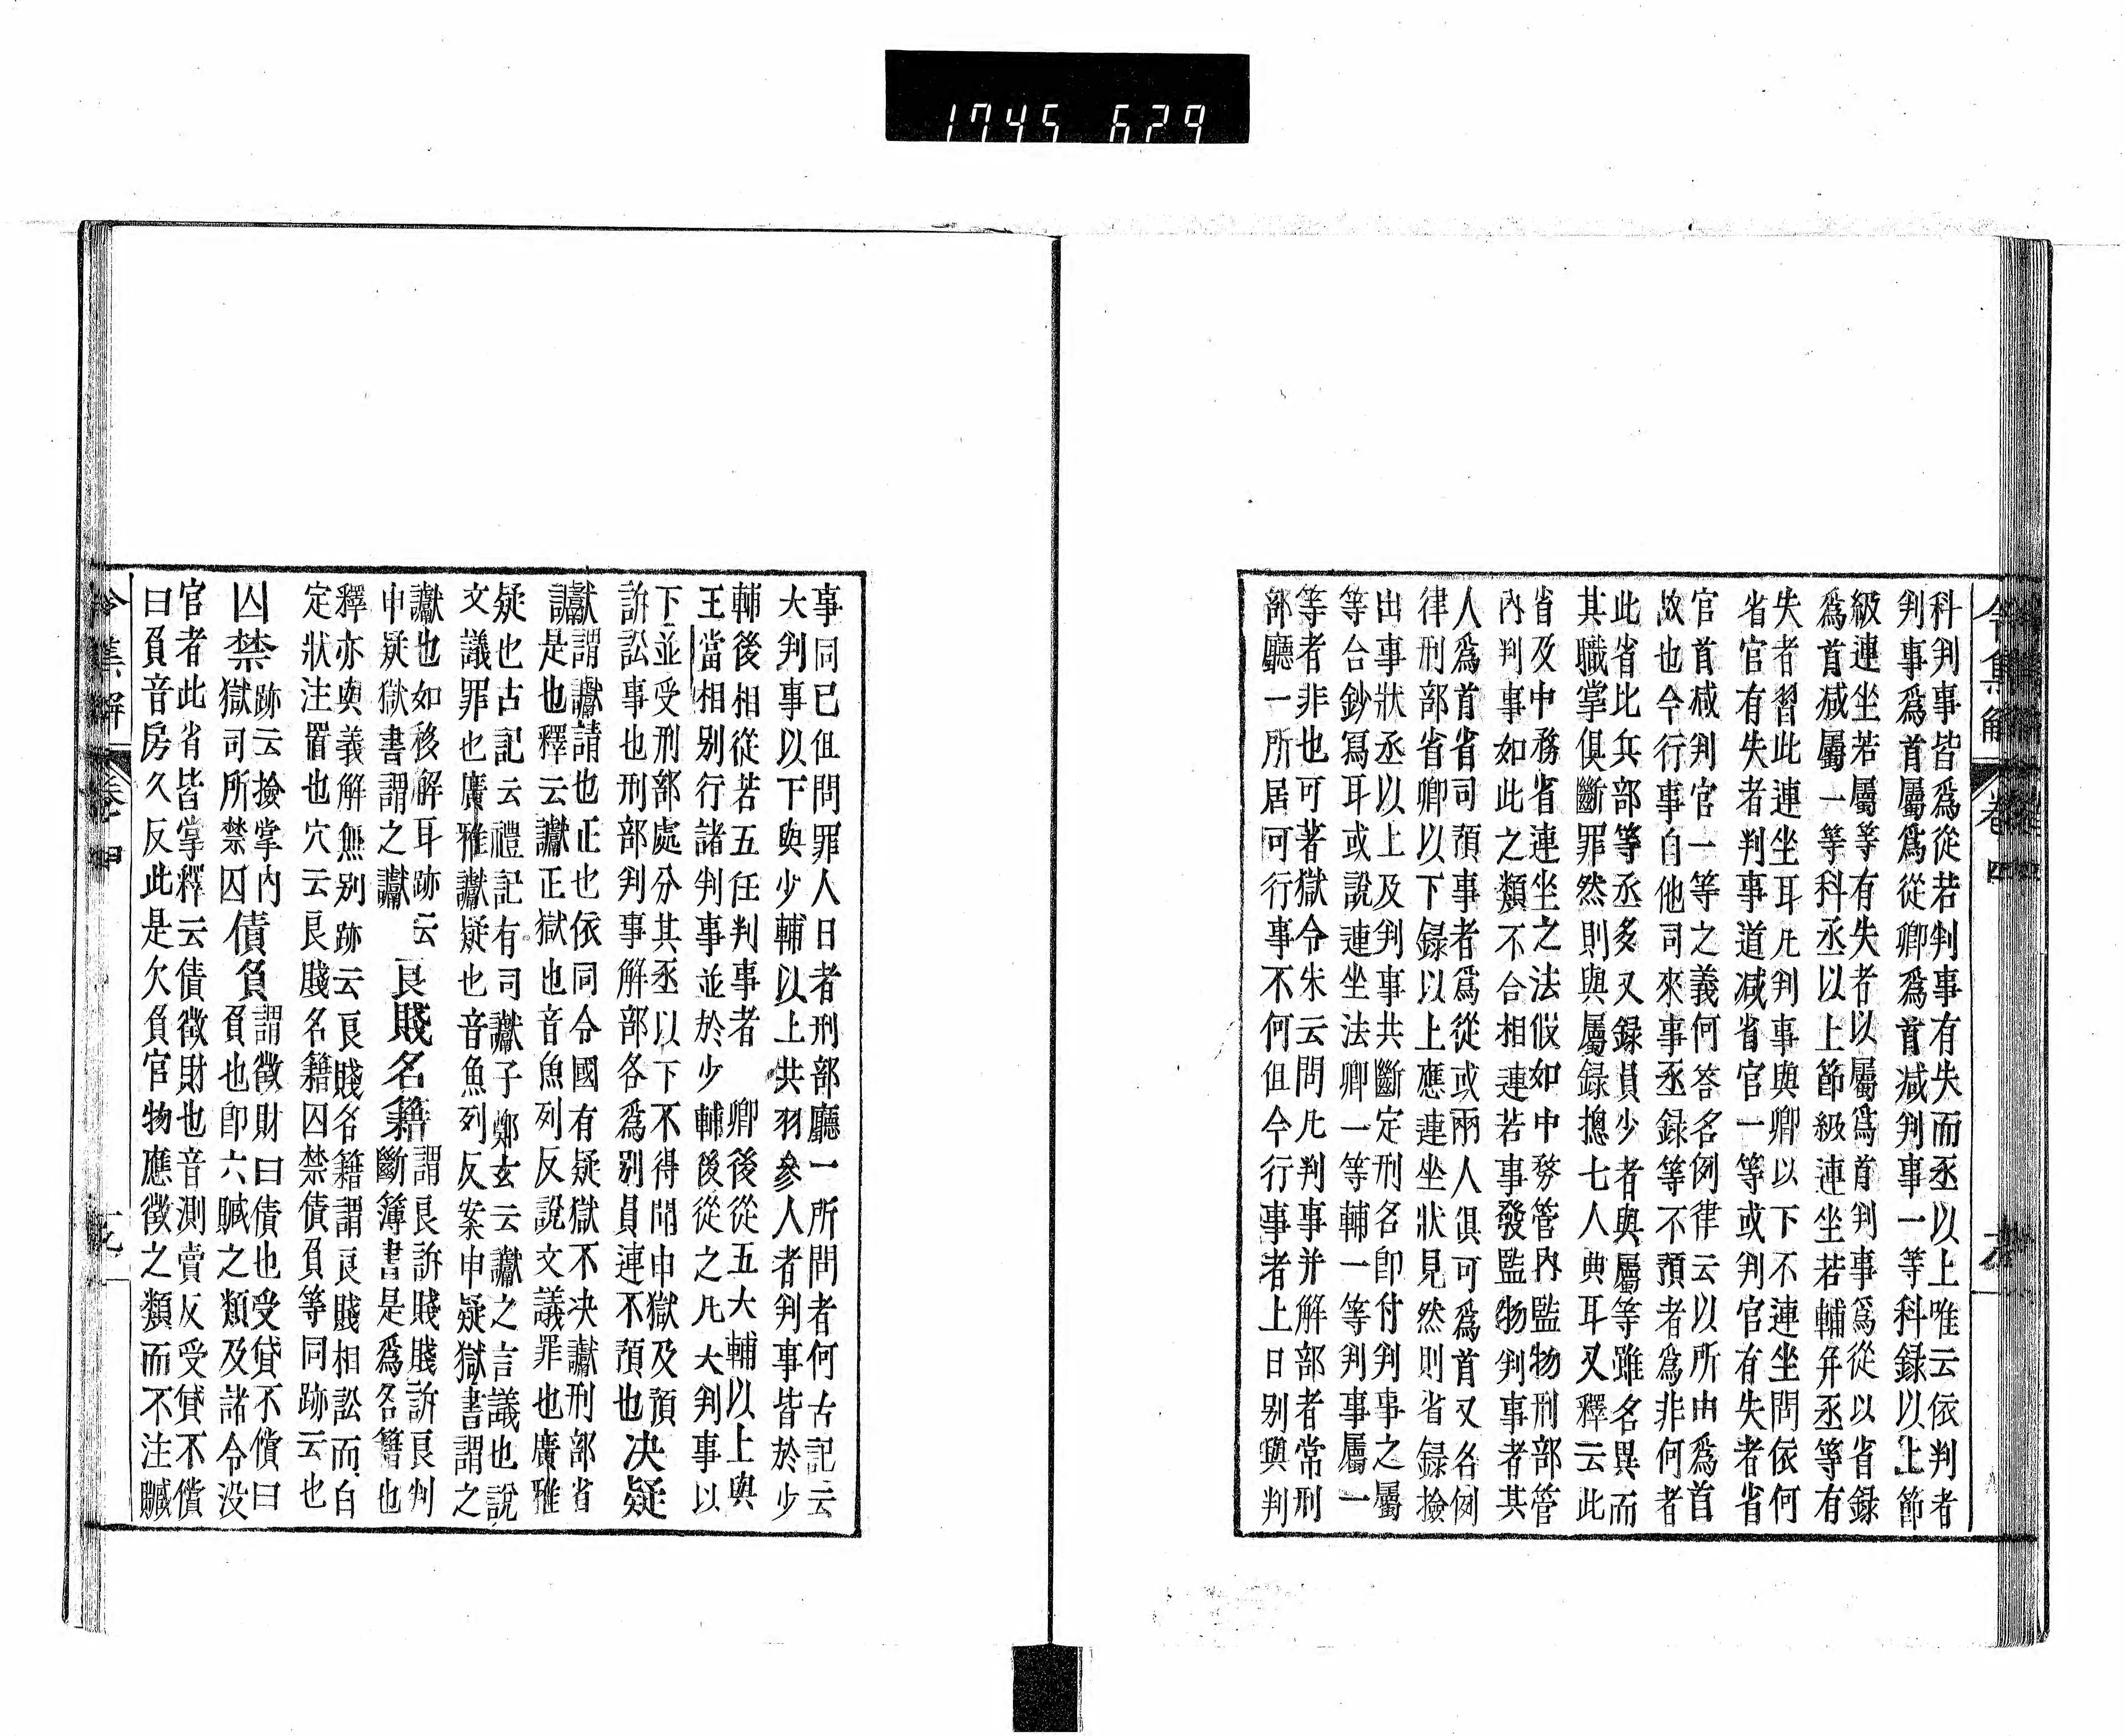 1745 629
令集解 卷四
科判事皆爲從若判事有失而丞以上唯云依判者
判事爲首屬爲從卿爲首减判事一等科録以上節
級連坐若屬等有失者以屬爲首判事爲從以省録
爲首减屬一等科丞以上節級連坐若輔并丞等有
失者習此連坐耳凡判事與卿以下不連坐問依何
省官有失者判事道减省官一等或判官有失者省
官首减判官一等之義何答名例律云以所由爲首
故也今行事自他司來事丞録等不預者爲非何者
此省比兵部等丞多又録員少者與屬等雖名異而
其職掌俱斷罪然則與屬録摠七人典耳又釋云此
省及中務省連坐之法假如中務管内監物刑部管
内判事如此之類不合相連若事發監物判事者其
人爲首省司預事者爲從或兩人俱可爲首又名例
律刑部省卿以下録以上應連坐狀見然則省録撿
出事狀丞以上及判事共斷定刑名即付判事之屬
等合鈔冩耳或說連坐法卿一等輔一等判事屬一
等者非也可著獄令朱云問凡判事并解部者常刑
部廳一所居可行事不何但今行事者上日别與判
事同已但問罪人日者刑部廳一所問者何古記云
大判事以下與少輔以上共羽參人者判事皆於少
輔後相從若五任判事者 卿後從五大輔以上與
王當相别行諸判事並於少輔後從之凡大判事以
下並受刑部處分其丞以下不得聞申獄及預
訴訟事也刑部判事解部各爲别員連不預也决疑
讞謂讞請也正也依同令國有疑獄不决讞刑部省
讞是也釋云讞正獄也音魚列反說文議罪也廣雅
疑也古記云禮記有司讞子鄭玄云讞之言議也說
文議罪也廣雅讞疑也音魚列反案申疑獄書謂之
讞也如移解耳跡云 良賤名籍謂良訴賤賤訴良判
申疑獄書謂之讞 斷簿書是爲名籍也
釋亦與義解無别跡云良賤名籍謂良賤相訟而自
定狀注置也穴云良賤名籍囚禁債負等同跡云也
囚禁跡云撿掌内債負謂徵財曰債也受貸不償曰
獄司所禁囚 負也即六贓之類及諸令没
官者此省皆掌釋云債徵財也音測賣反受貸不償
曰負音房久反此是欠負官物應徵之類而不注贓
令集解 卷四